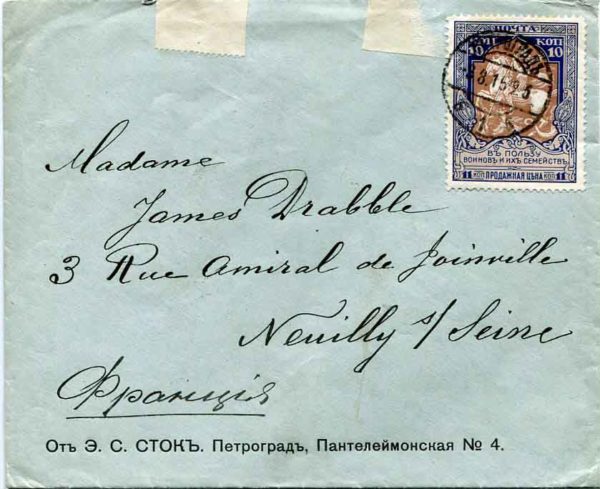 ПОЧТА
10 КОП КОП 10
ВЪ ПОЛЬЗУ
ВОИНОВЪ И ИХЪ СЕМЕЙСТВЪ
11 КОП ПРОДАЖНАЯ ЦѢНА КОП 11
Madame
James Drabble
3 Rue Amiral de Joinville
Neuilly s/ Seine
Франція
Отъ Э. С. СТОКЪ. Петроградъ, Пантелеймонская № 4.